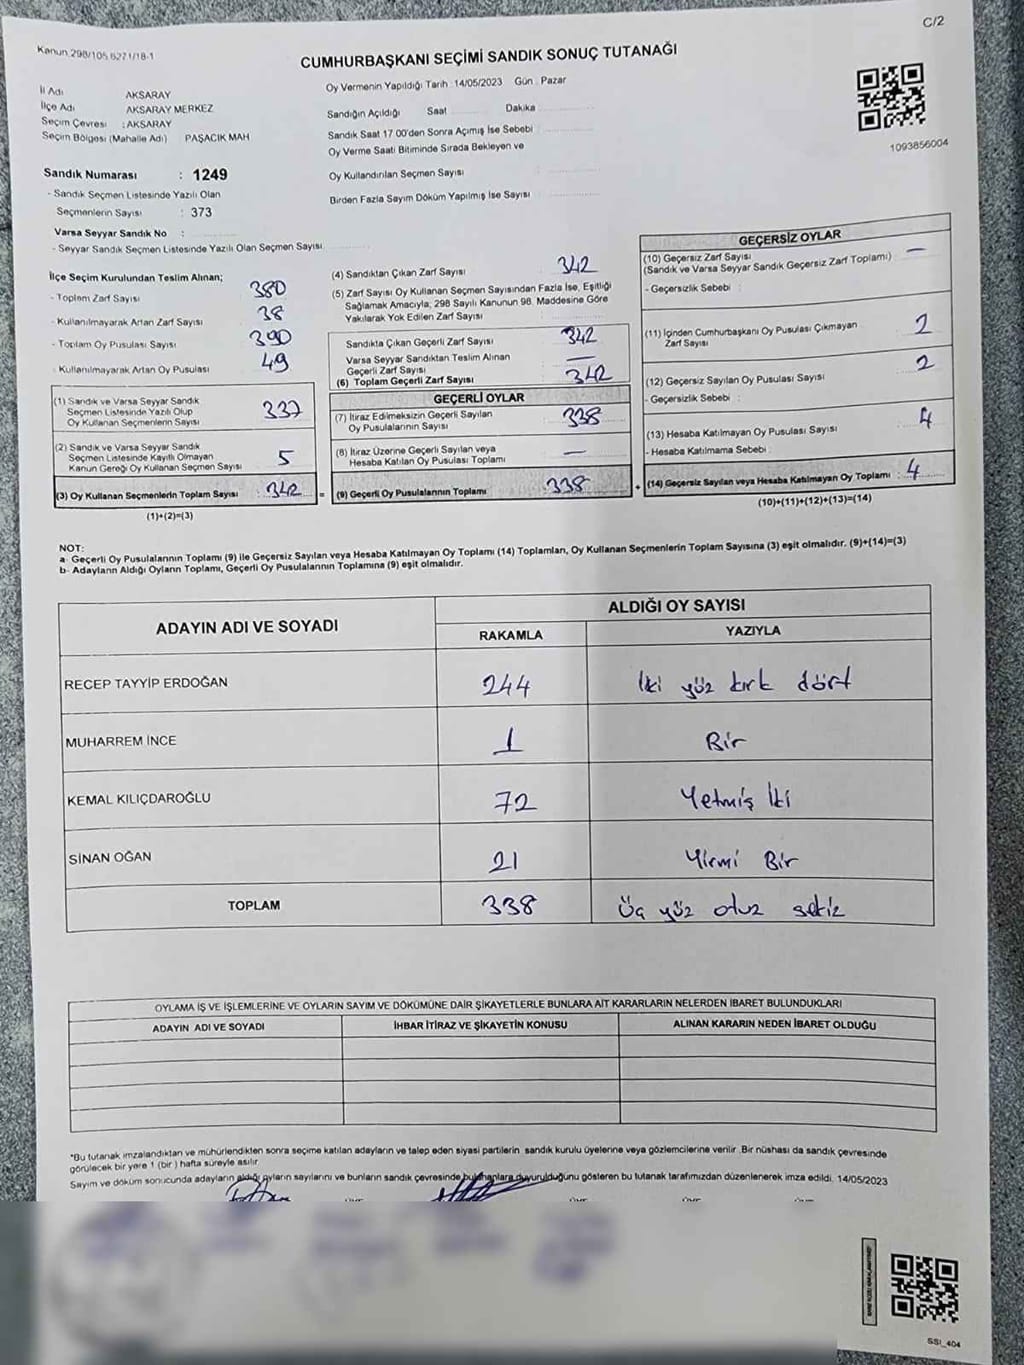 C/2
Kanun 298/105,6271/18-1
CUMHURBAŞKANI SEÇİMİ SANDIK SONUÇ TUTANAĞI
İl Adı AKSARAY
İlçe Adı AKSARAY MERKEZ
Seçim Çevresi : AKSARAY
Seçim Bölgesi (Mahalle Adı) PAŞACIK MAH
Sandık Numarası : 1249
- Sandık Seçmen Listesinde Yazılı Olan
Seçmenlerin Sayısı : 373
Varsa Seyyar Sandık No :
- Seyyar Sandık Seçmen Listesinde Yazılı Olan Seçmen Sayısı
Oy Vermenin Yapıldığı Tarih : 14/05/2023 Gün : Pazar
Sandığın Açıldığı Saat Dakika
Sandık Saat 17 00'den Sonra Açımış İse Sebebi
Oy Verme Saati Bitiminde Sırada Bekleyen ve
Oy Kullandırılan Seçmen Sayısı
Birden Fazla Sayım Döküm Yapılmış İse Sayısı
1093856004
İlçe Seçim Kurulundan Teslim Alınan;
- Toplam Zarf Sayısı 380
- Kullanılmayarak Artan Zarf Sayısı 38
- Toplam Oy Pusulası Sayısı 390
- Kullanılmayarak Artan Oy Pusulası 49
(1) Sandık ve Varsa Seyyar Sandık
Seçmen Listesinde Yazılı Olup
Oy Kullanan Seçmenlerin Sayısı 337
(2) Sandık ve Varsa Seyyar Sandık
Seçmen Listesinde Kayıtlı Olmayan
Kanun Gereği Oy Kullanan Seçmen Sayısı 5
(3) Oy Kullanan Seçmenlerin Toplam Sayısı : 342 =
(1)+(2)=(3)
(4) Sandıktan Çıkan Zarf Sayısı 342
(5) Zarf Sayısı Oy Kullanan Seçmen Sayısından Fazla İse, Eşitliği
Sağlamak Amacıyla; 298 Sayılı Kanunun 98. Maddesine Göre
Yakılarak Yok Edilen Zarf Sayısı
Sandıkta Çıkan Geçerli Zarf Sayısı 342
Varsa Seyyar Sandıktan Teslim Alınan
Geçerli Zarf Sayısı —
(6) Toplam Geçerli Zarf Sayısı 342
GEÇERLİ OYLAR
(7) İtiraz Edilmeksizin Geçerli Sayılan
Oy Pusulalarının Sayısı 338
(8) İtiraz Üzerine Geçerli Sayılan veya
Hesaba Katılan Oy Pusulası Toplamı —
(9) Geçerli Oy Pusulalarının Toplamı 338 +
GEÇERSİZ OYLAR
(10) Geçersiz Zarf Sayısı —
(Sandık ve Varsa Seyyar Sandık Geçersiz Zarf Toplamı)
- Geçersizlik Sebebi :
(11) İçinden Cumhurbaşkanı Oy Pusulası Çıkmayan
Zarf Sayısı
(12) Geçersiz Sayılan Oy Pusulası Sayısı 2
- Geçersizlik Sebebi :
(13) Hesaba Katılmayan Oy Pusulası Sayısı
- Hesaba Katılmama Sebebi
(14) Geçersiz Sayılan veya Hesaba Katılmayan Oy Toplamı 4
(10)+(11)+(12)+(13)=(14)
NOT:
a- Geçerli Oy Pusulalarının Toplamı (9) ile Geçersiz Sayılan veya Hesaba Katılmayan Oy Toplamı (14) Toplamları, Oy Kullanan Seçmenlerin Toplam Sayısına (3) eşit olmalıdır. (9)+(14)=(3)
b- Adayların Aldığı Oyların Toplamı, Geçerli Oy Pusulalarının Toplamına (9) eşit olmalıdır.
ADAYIN ADI VE SOYADI ALDIĞI OY SAYISI
RAKAMLA YAZIYLA
RECEP TAYYİP ERDOĞAN 244 İki yüz kırk dört
MUHARREM İNCE 1 Bir
KEMAL KILIÇDAROĞLU 72 Yetmiş İki
SİNAN OĞAN 21 Yirmi Bir
TOPLAM 338 Üç yüz otuz sekiz
OYLAMA İŞ VE İŞLEMLERİNE VE OYLARIN SAYIM VE DÖKÜMÜNE DAİR ŞİKAYETLERLE BUNLARA AİT KARARLARIN NELERDEN İBARET BULUNDUKLARI
ADAYIN ADI VE SOYADI İHBAR İTİRAZ VE ŞİKAYETİN KONUSU ALINAN KARARIN NEDEN İBARET OLDUĞU
*Bu tutanak imzalandıktan ve mühürlendikten sonra seçime katılan adayların ve talep eden siyasi partilerin sandık kurulu üyelerine veya gözlemcilerine verilir. Bir nüshası da sandık çevresinde
görülecek bir yere 1 (bir) hafta süreyle asılır
Sayım ve döküm sonucunda adayların aldığı oyların sayılarını ve bunların sandık çevresinde bulunanlara duyurulduğunu gösteren bu tutanak tarafımızdan düzenlenerek imza edildi. 14/05/2023
SSI_404